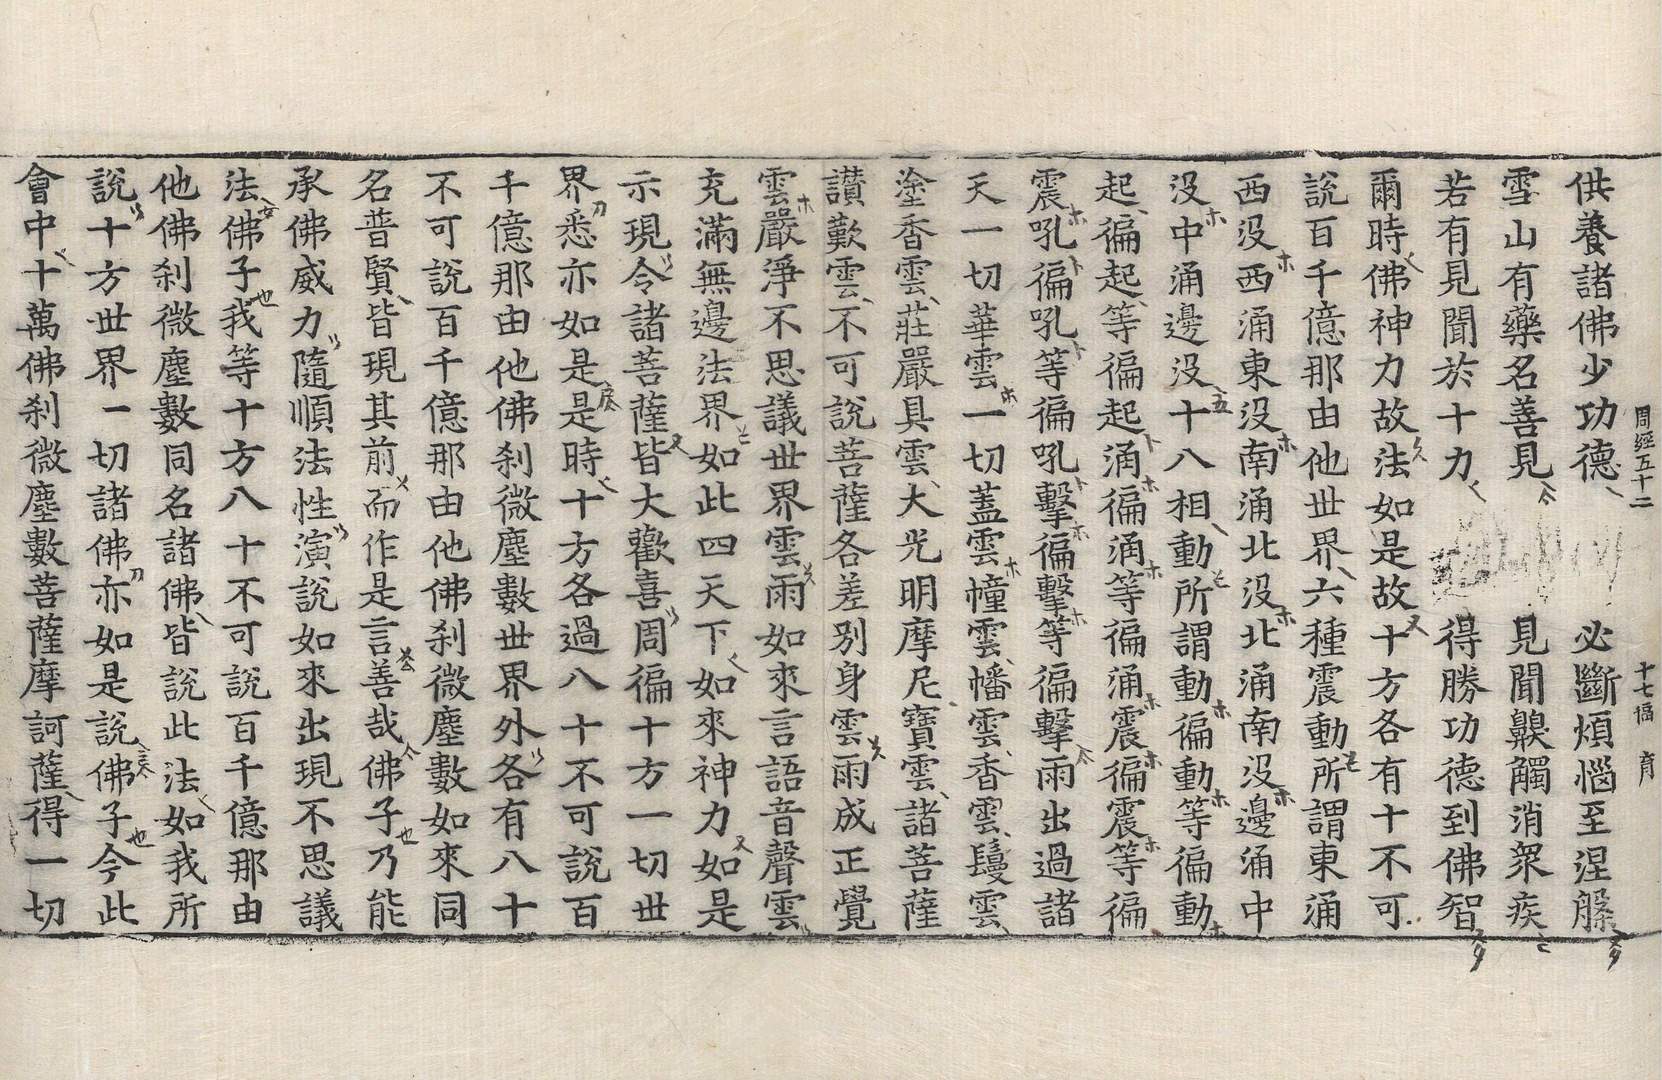 周經五十二 十七福 育
供養諸佛少功德 必斷煩惱至涅槃
雪山有藥名善見 見聞齅觸消衆疾
若有見聞於十力 得勝功德到佛智
爾時佛神力故法如是故十方各有十不可
說百千億那由他世界六種震動所謂東涌
西没西涌東没南涌北没北涌南没邊涌中
没中涌邊没十八相動所謂動徧動等徧動
起徧起等徧起涌徧涌等徧涌震徧震等徧
震吼徧吼等徧吼擊徧擊等徧擊雨出過諸
天一切華雲一切蓋雲幢雲幡雲香雲鬘雲
塗香雲莊嚴具雲大光明摩尼寶雲諸菩薩
讃歎雲不可說菩薩各差別身雲雨成正覺
雲嚴淨不思議世界雲雨如來言語音聲雲
充滿無邊法界如此四天下如來神力如是
示現令諸菩薩皆大歡喜周徧十方一切世
界悉亦如是是時十方各過八十不可說百
千億那由他佛刹微塵數世界外各有八十
不可說百千億那由他佛刹微塵數如來同
名普賢皆現其前而作是言善哉佛子乃能
承佛威力隨順法性演說如來出現不思議
法佛子我等十方八十不可說百千億那由
他佛刹微塵數同名諸佛皆說此法如我所
說十方世界一切諸佛亦如是說佛子今此
會中十萬佛刹微塵數菩薩摩訶薩得一切